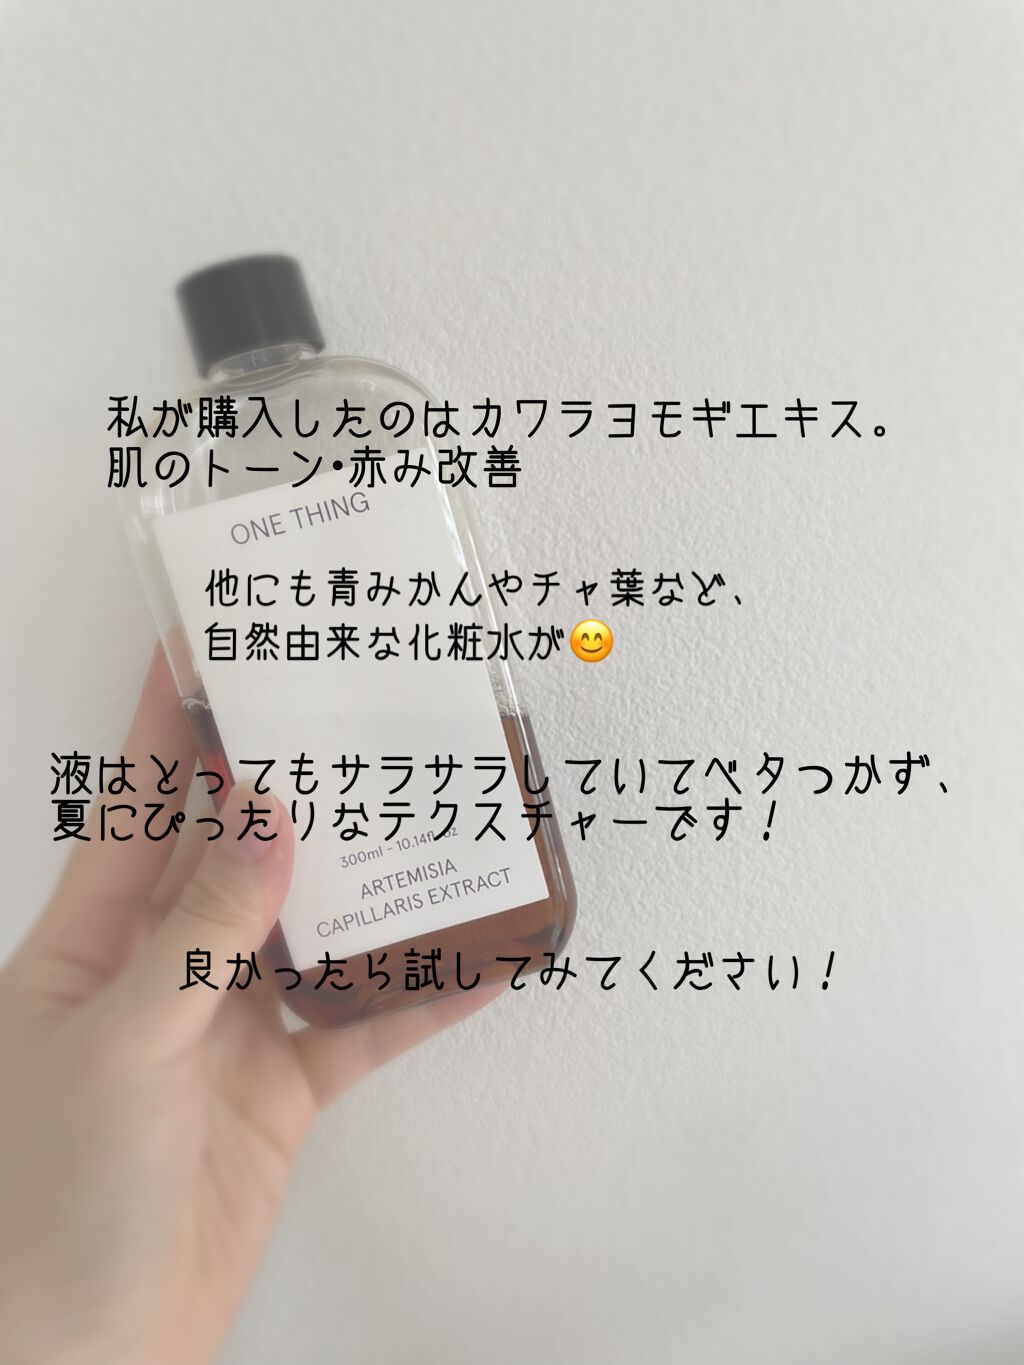 私が購入したのはカワラヨモギエキス。
肌のトーン・赤み改善
ONE THING
他にも青みかんやチャ葉など、
自然由来な化粧水が😊
液はとってもサラサラしていてベタつかず、
夏にぴったりなテクスチャーです！
300ml - 10.14fl oz
ARTEMISIA
CAPILLARIS EXTRACT
良かったら試してみてください！